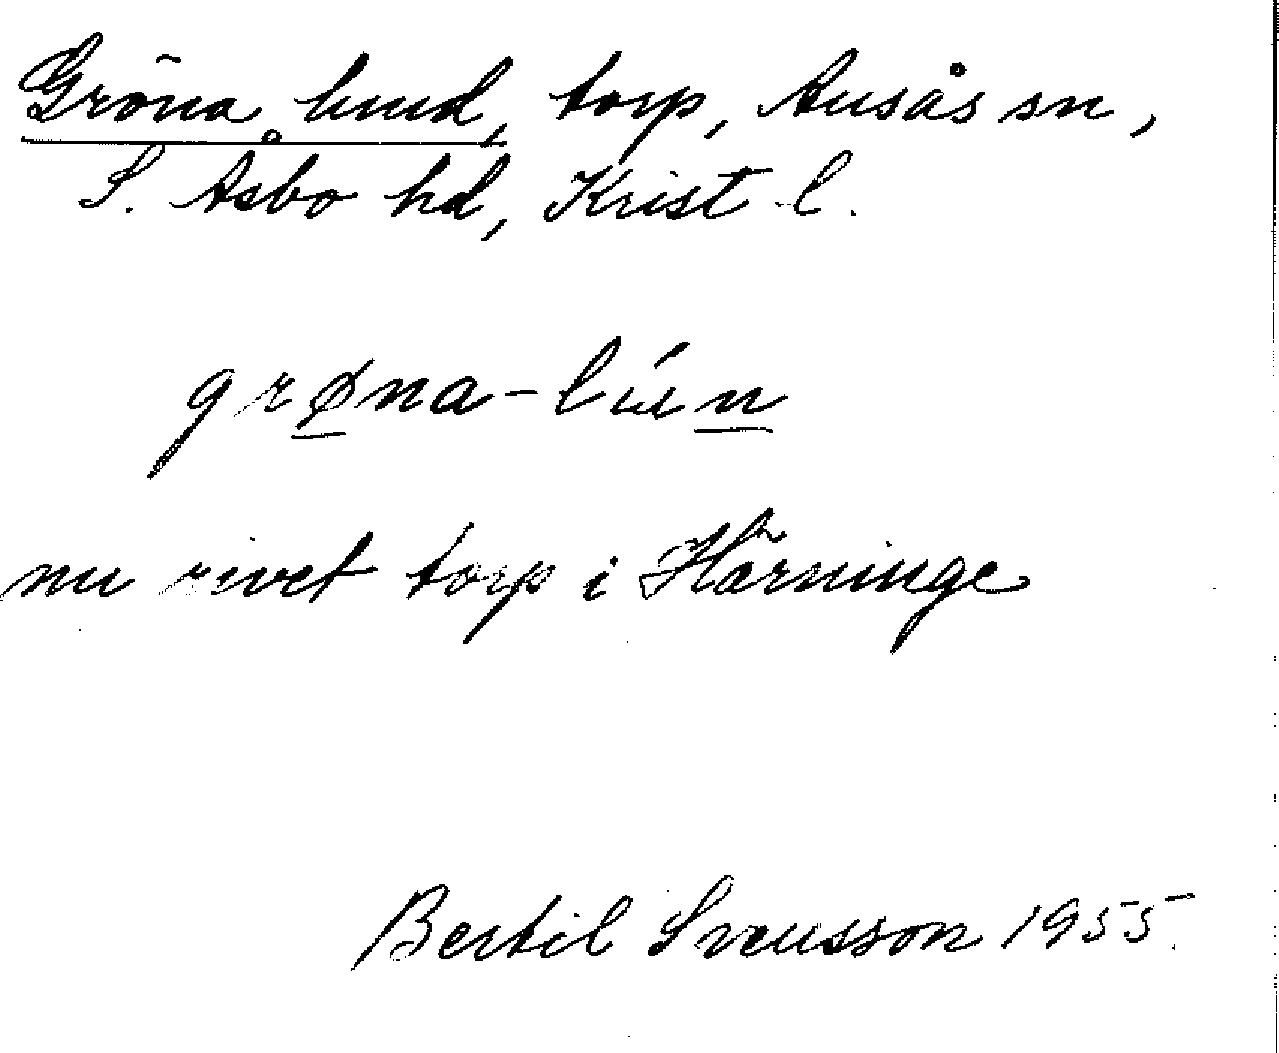 Gröna lund, torp, Ausås sn,
S. Åsbo hd, Krist l.
grøna-lún
nu rivet torp i Härninge
Bertil Svensson 1955.